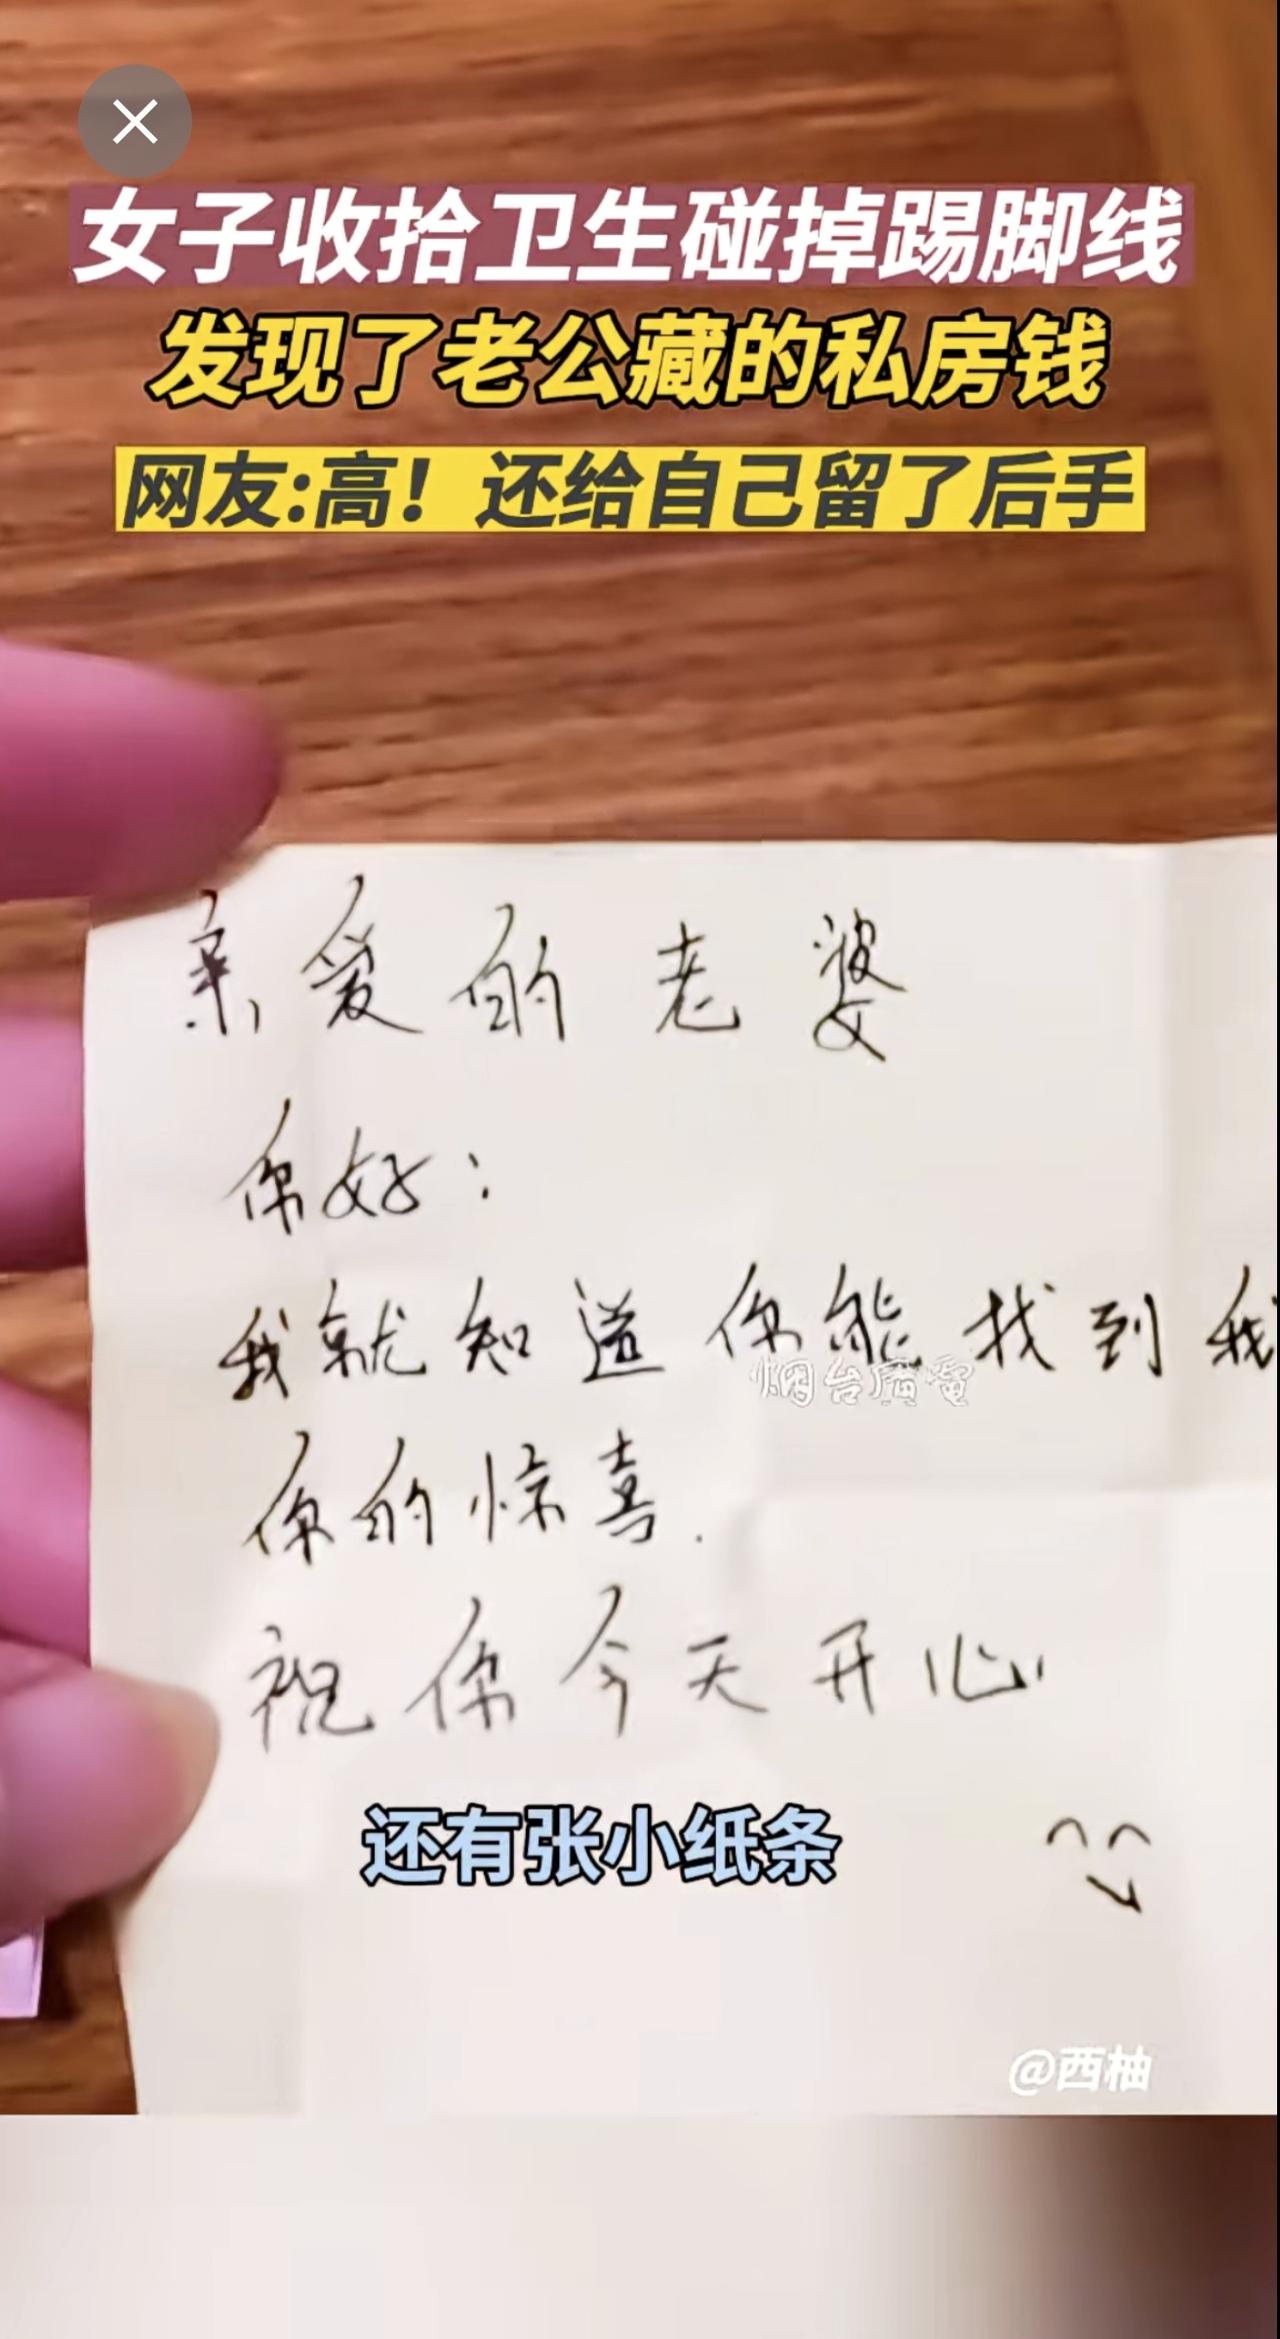 女子收拾卫生碰掉踢脚线
发现了老公藏的私房钱
网友:高！还给自己留了后手
亲爱的老婆
你好：
我就知道你能找到我
烟台广电
你的惊喜.
祝你今天开心
还有张小纸条
@西柚